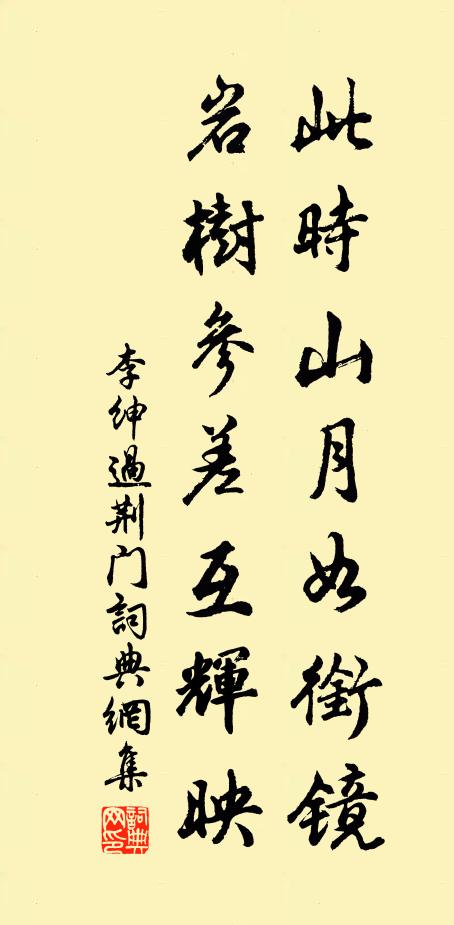 此時山月如銜镜
岩樹參差互輝映
李绅過荆门詞典網集
詞典网印